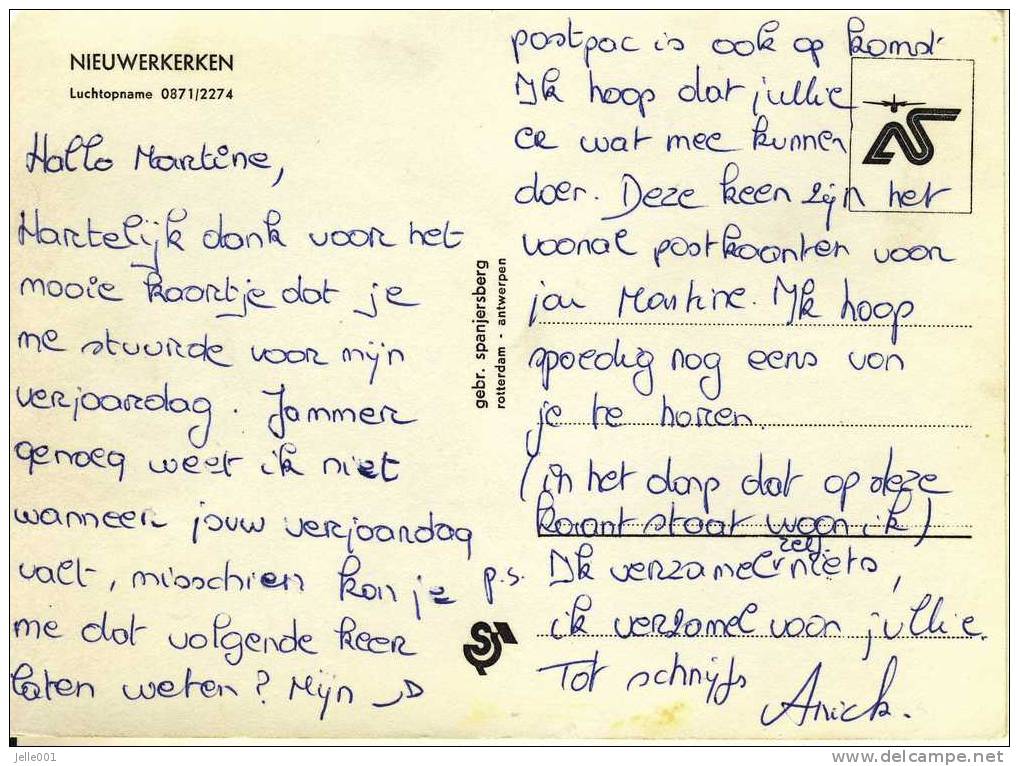 NIEUWERKERKEN
Luchtopname 0871/2274
Hallo Martine,
Hartelijk dank voor het
mooie kaartje dat je
me stuurde voor mijn
verjaardag. Jammer
genoeg weet ik niet
wanneer jouw verjaardag
valt, misschien kan je
me dat volgende keer
laten weten? Mijn
gebr. spanjersberg
rotterdam - antwerpen
postpac is ook op komst
Ik hoop dat jullie
er wat mee kunnen
doen. Deze keer zijn het
vooral postkaarten voor
jou Martine. Ik hoop
spoedig nog eens van
je te horen.
(in het dorp dat op deze
kaart staat woon ik)
p.s. Ik verzamel zelf niets,
ik verzamel voor jullie.
Tot schrijfs
Anick.
jelle001
www.delcampe.net